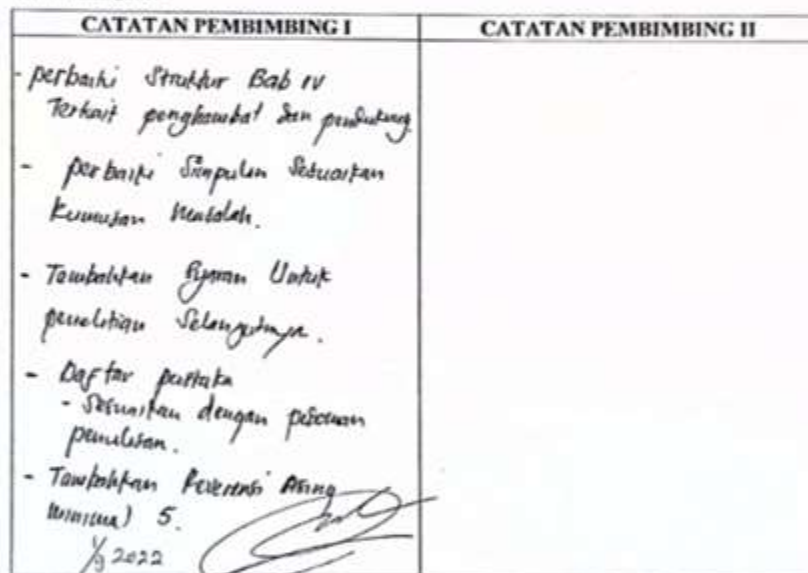 CATATAN PEMBIMBING I
CATATAN PEMBIMBING II
- perbaiki Struktur Bab IV
Terkait penghambat dan pendukung.
- perbaiki Simpulan Sesuaikan
Rumusan Masalah.
- Tambahkan Untuk
penelitian Selanjutnya.
- Daftar pustaka
- Sesuaikan dengan pedoman
penulisan.
- Tambahkan Referensi Asing
minimal 5.
1/9 2022